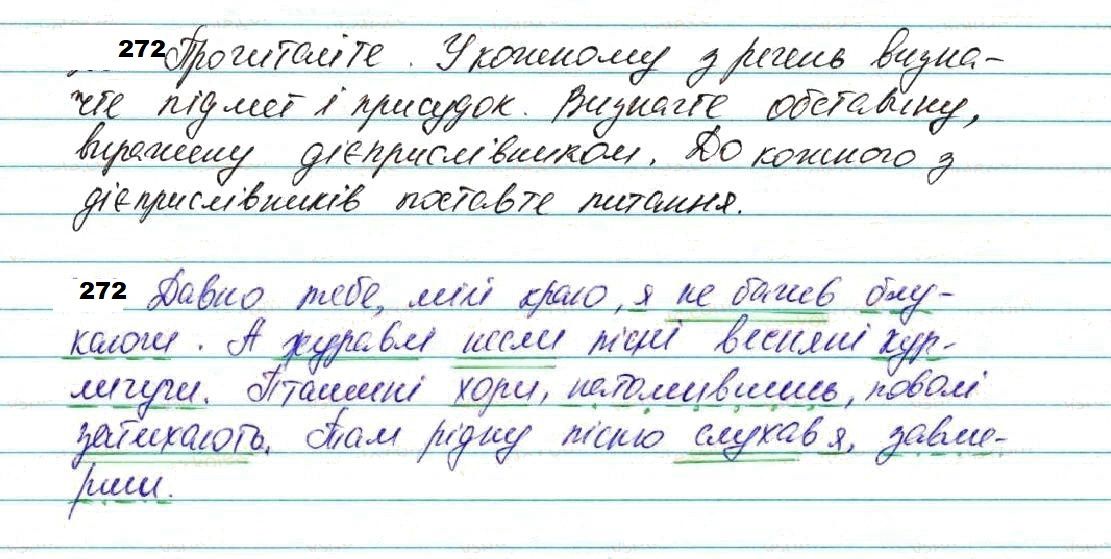 272 Прочитайте. У кожному з речень визна-
чте підмет і присудок. Визначте обставину,
виражену дієприслівником. До кожного з
дієприслівників поставте питання.
272 Давно тебе, мій краю, я не бачив блу-
каючи. А журавлі несли пісні весняні кур-
личучи. Пташині хори, натомившись, поволі
затихають. Там рідну пісню слухав я, завме-
рши.